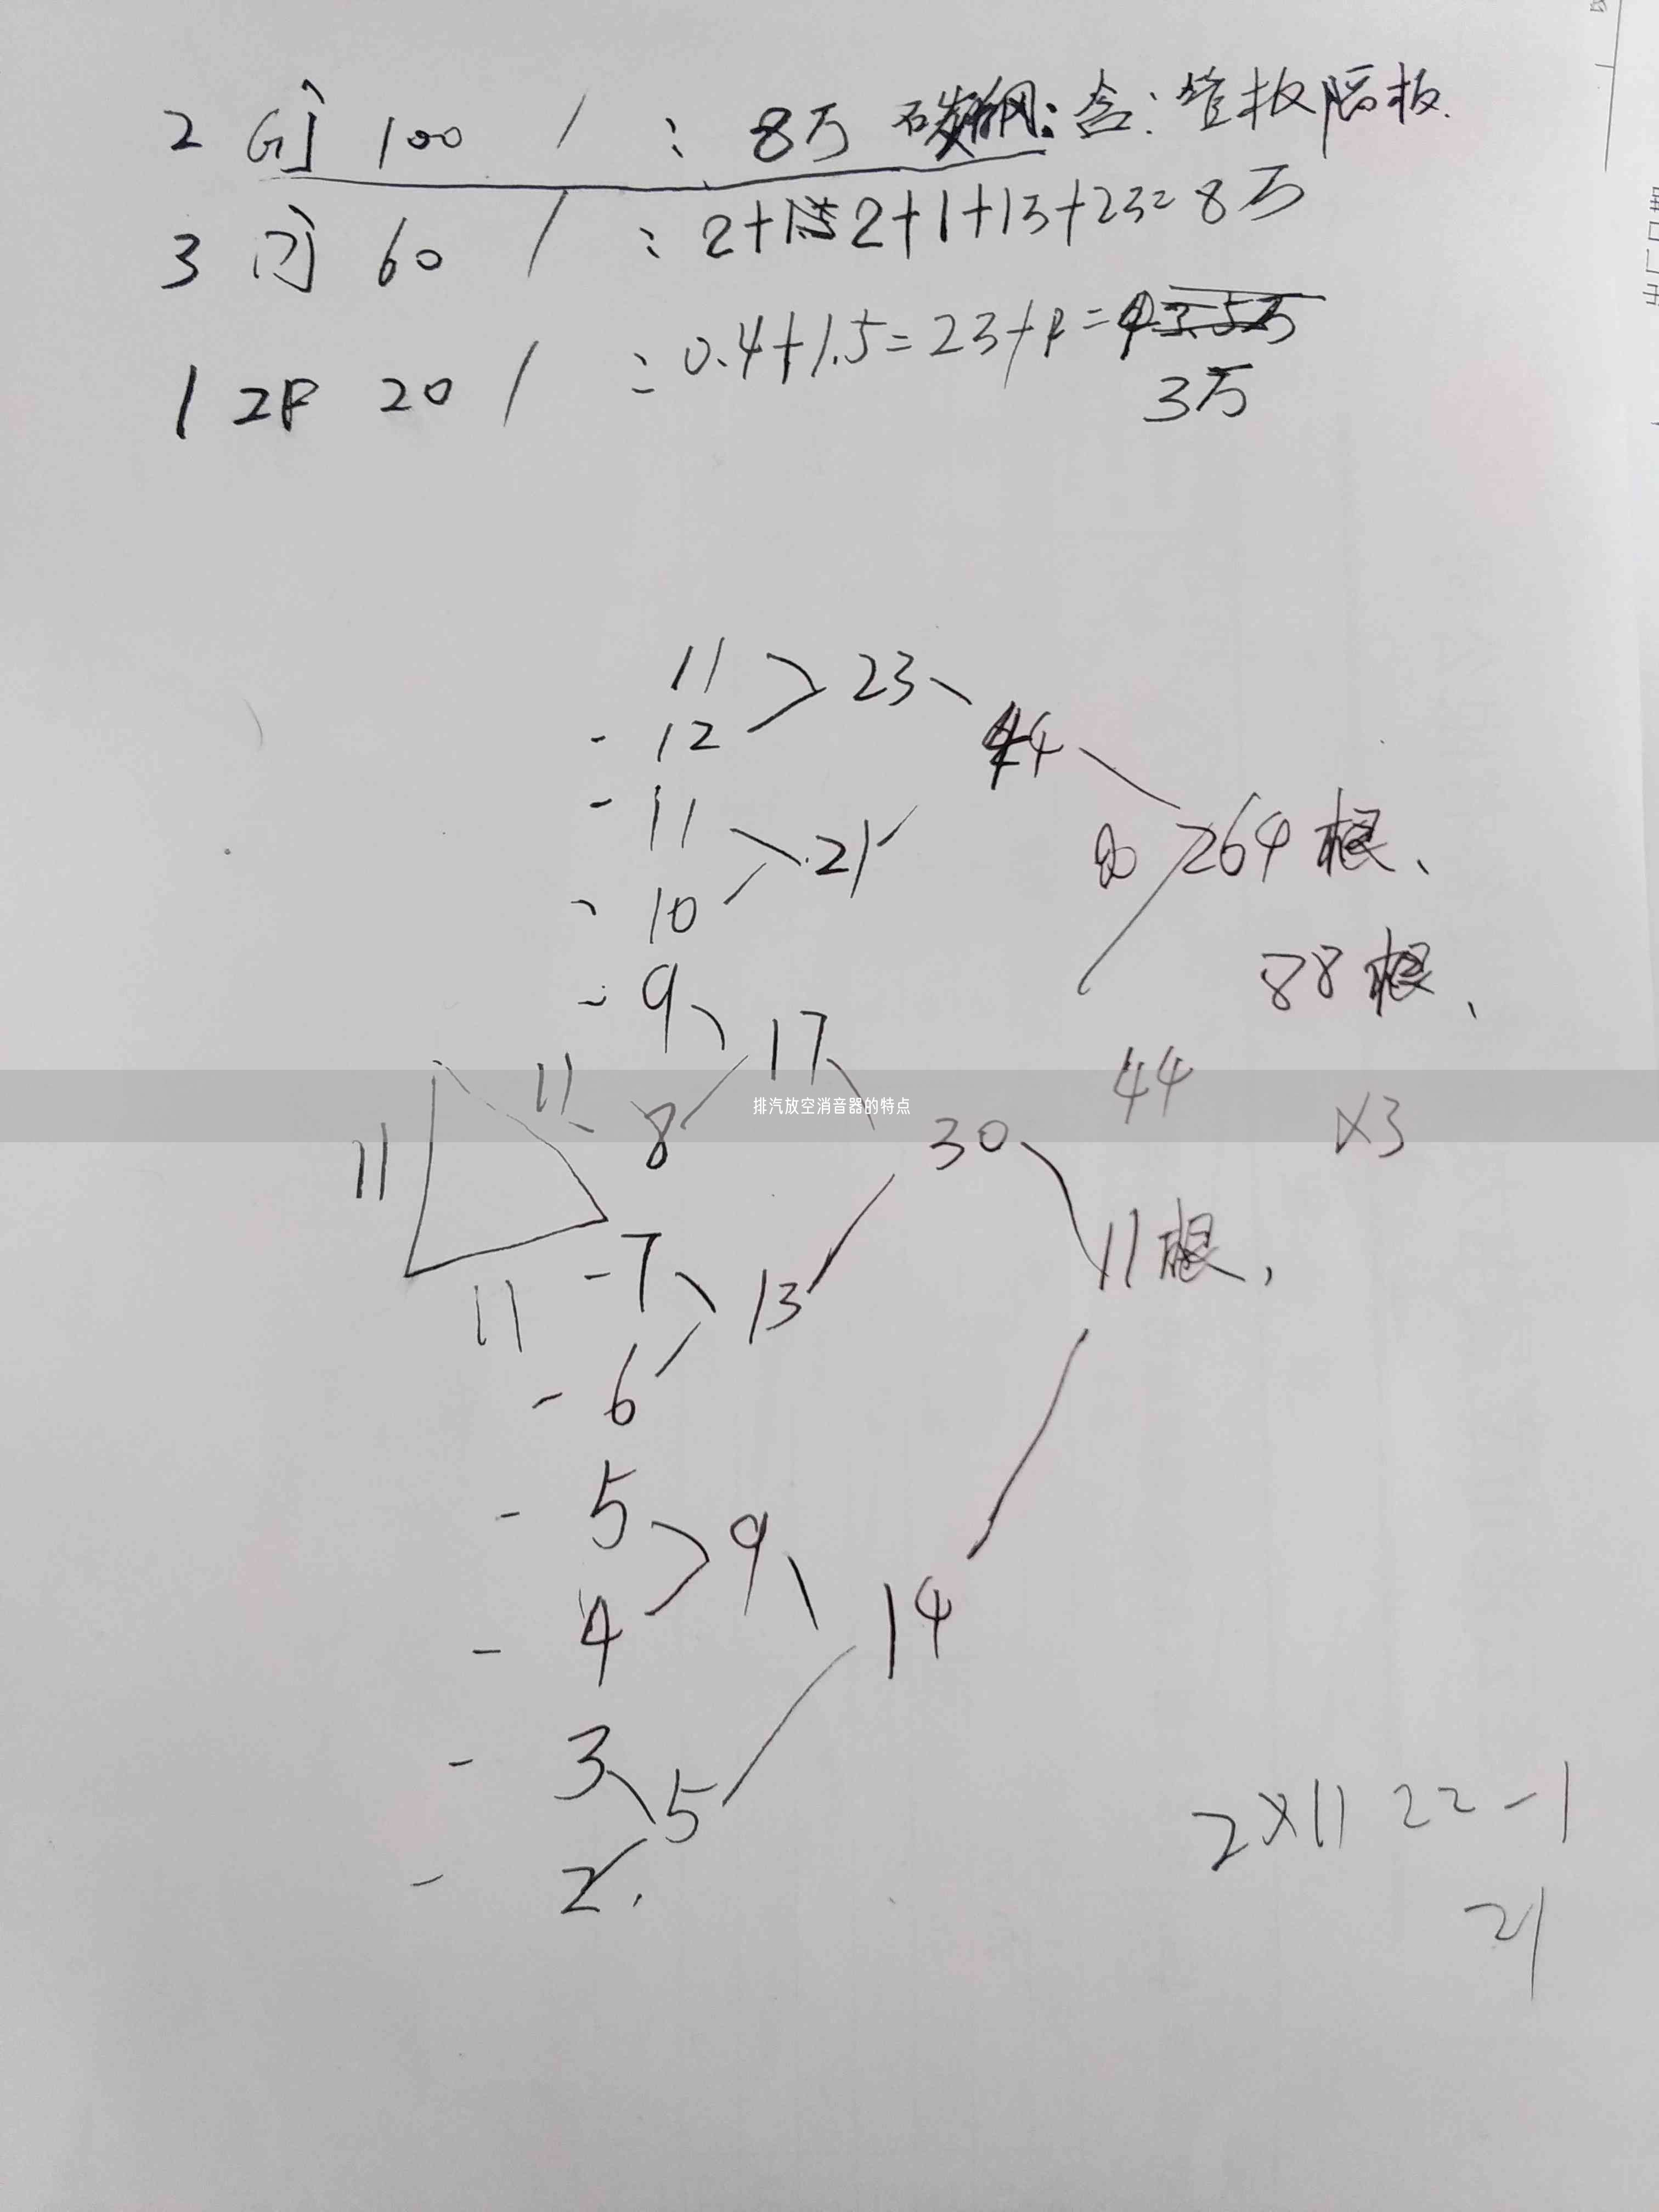 2 100 / : 8万 碳钢: 含: 管板隔板.
3 60 / : 2+1 2+1+13+23= 8万
1 2P 20 / : 0.4+1.5=23+P=
3万
11 23
- 12 44
- 11 21 264根、
- 10 88根、
- 9 17 44
11 8 30 ×3
排汽放空消音器的特点
11
11 - 7 13 11根,
- 6
- 5 9
- 4 14
- 3 5
- 2.
2×11 22-1
21